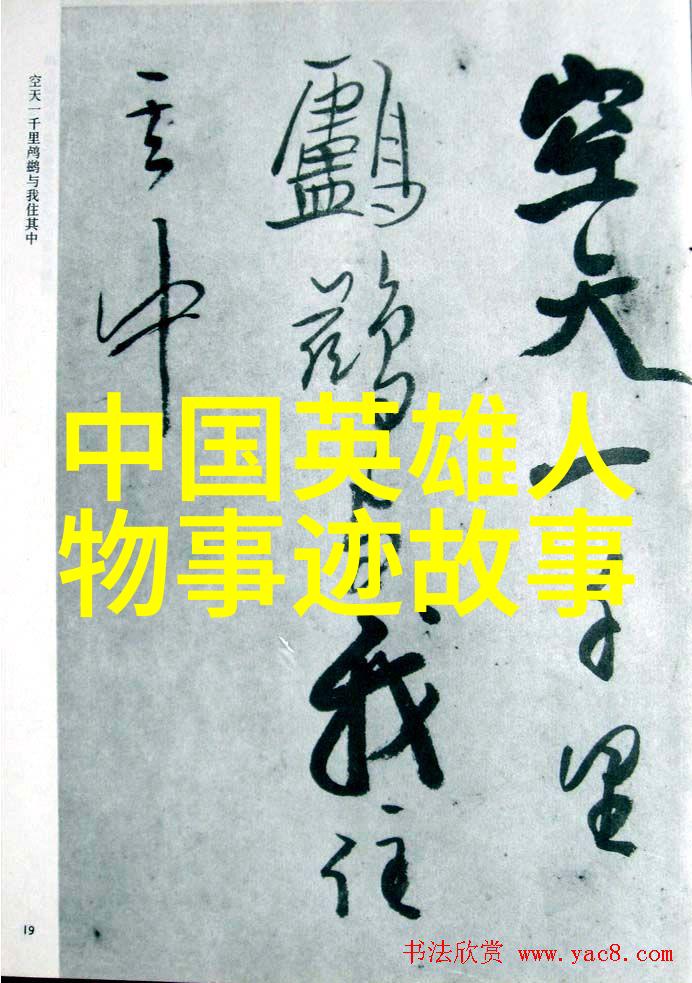 空天一千里
鸕鶿与我住
其中
空天一千里鸬鹚与我住其中
中国英雄人
物事迹故事
19
书法欣赏 www.yac8.com